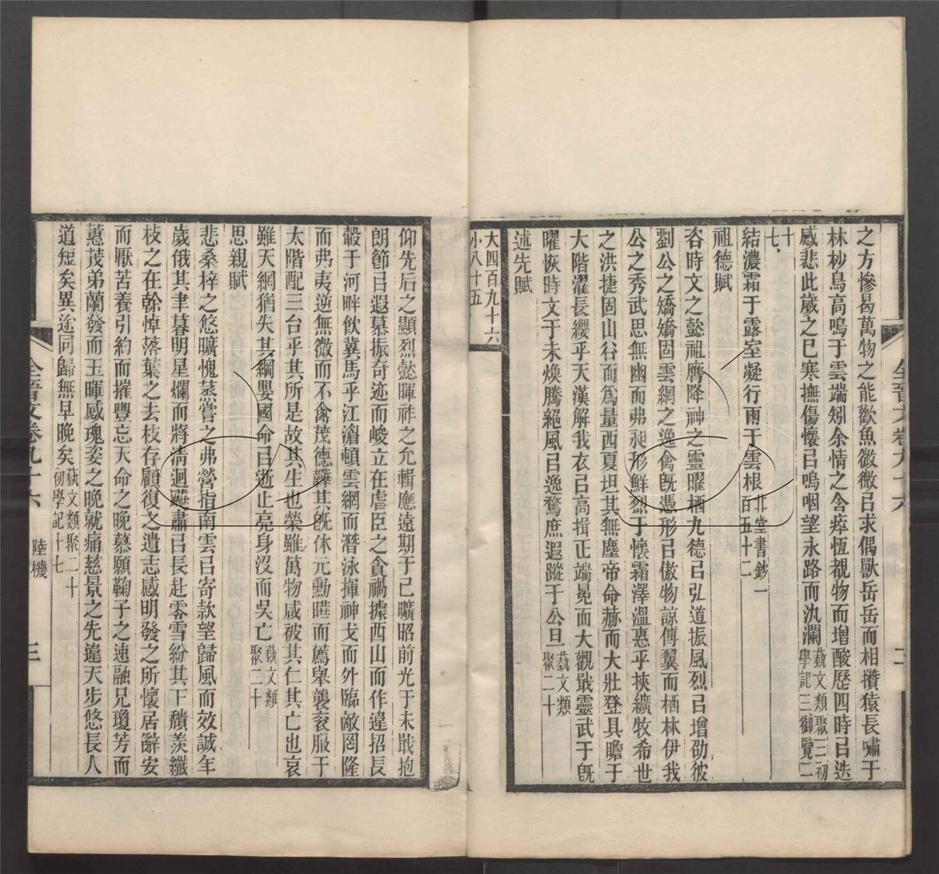 之方慘曷萬物之能歡魚微微㠯求偶獸岳岳而相攢猿長嘯于
林杪鳥高鳴于雲端矧余情之含瘁恆覩物而增酸歷四時㠯迭
感悲此歲之已寒撫傷懷㠯嗚咽望永路而汍瀾藝文類聚三初學記三御覽二
十七
結濃霜于露室凝行雨于雲根北堂書鈔一百五十二
祖德賦
咨時文之懿祖膺降神之靈曜栖九德㠯弘道振風烈㠯增劭彼
劉公之矯矯固雲網之逸禽旣憑形㠯傲物諒傅翼而栖林伊我
公之秀武思無幽而弗昶形鮮烈于懷霜澤溫惠乎挾纊牧希世
之洪捷固山谷而爲量西夏坦其無塵帝命赫而大壯登具瞻于
大階濯長纓乎天漢解我衣㠯高揖正端冕而大觀戢靈武于旣
曜恢時文于未煥騰絕風㠯逸騖庶遐蹤于公旦藝文類聚二十
述先賦
大四百九十六
小八十五
仰先后之顯烈懿暉祚之允輯應遠期于已曠昭前光于未戢抱
朗節㠯遐慕振奇迹而峻立在虐臣之貪禍據西山而作違招長
轂于河畔飲冀馬乎江滄頓雲網而潛泳揮神戈而外臨敵罔隆
而弗夷逆無微而不禽茂德韡其旣休元勳曄而薦舉襲袞服于
太階配三台乎其所是故其生也榮雖萬物咸被其仁其亡也哀
雖天網猶失其綱嬰國命㠯逝止亮身沒而吳亡藝文類聚二十
思親賦
悲桑梓之悠曠愧蒸嘗之弗營指南雲㠯寄款望歸風而效誠年
歲俄其聿暮明星爛而將淸迴飇肅㠯長赴零雪紛其下頹羨纖
枝之在榦悼落葉之去枝存顧復之遺志感明發之所懷居辭安
而厭苦養引約而摧豐忘天命之晚慕願鞠子之速融兄瓊芳而
蕙茂弟蘭發而玉暉感瑰姿之晚就痛慈景之先違天步悠長人
道短矣異途同歸無早晚矣藝文類聚二十初學記十七
全晉文卷九十六 陸機 三